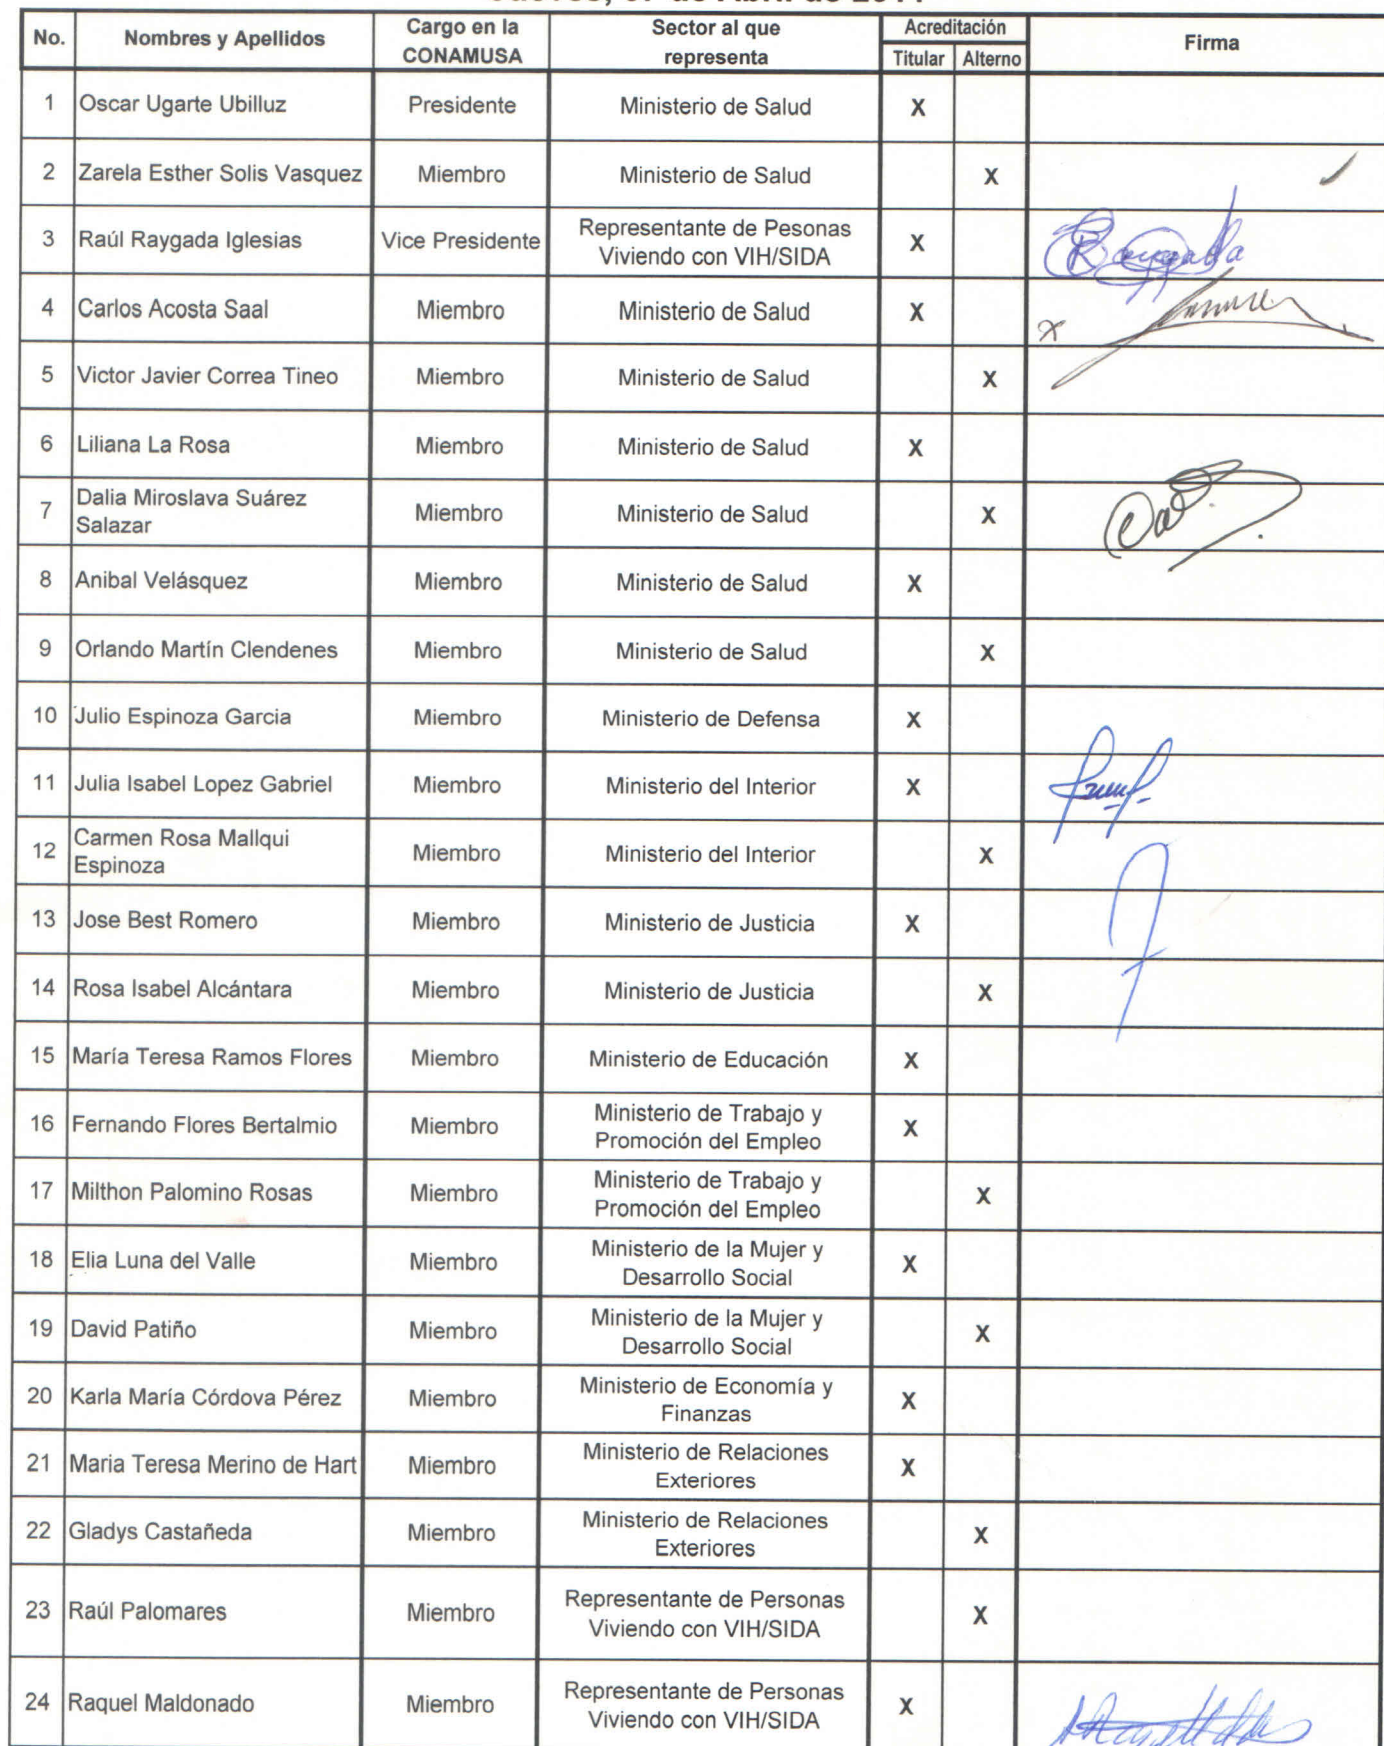 No. Nombres y Apellidos Cargo en la CONAMUSA Sector al que representa Acreditación Titular Alterno Firma
1 Oscar Ugarte Ubilluz Presidente Ministerio de Salud X
2 Zarela Esther Solis Vasquez Miembro Ministerio de Salud X
3 Raúl Raygada Iglesias Vice Presidente Representante de Pesonas Viviendo con VIH/SIDA X
4 Carlos Acosta Saal Miembro Ministerio de Salud X
5 Victor Javier Correa Tineo Miembro Ministerio de Salud X
6 Liliana La Rosa Miembro Ministerio de Salud X
7 Dalia Miroslava Suárez Salazar Miembro Ministerio de Salud X
8 Anibal Velásquez Miembro Ministerio de Salud X
9 Orlando Martín Clendenes Miembro Ministerio de Salud X
10 Julio Espinoza Garcia Miembro Ministerio de Defensa X
11 Julia Isabel Lopez Gabriel Miembro Ministerio del Interior X
12 Carmen Rosa Mallqui Espinoza Miembro Ministerio del Interior X
13 Jose Best Romero Miembro Ministerio de Justicia X
14 Rosa Isabel Alcántara Miembro Ministerio de Justicia X
15 María Teresa Ramos Flores Miembro Ministerio de Educación X
16 Fernando Flores Bertalmio Miembro Ministerio de Trabajo y Promoción del Empleo X
17 Milthon Palomino Rosas Miembro Ministerio de Trabajo y Promoción del Empleo X
18 Elia Luna del Valle Miembro Ministerio de la Mujer y Desarrollo Social X
19 David Patiño Miembro Ministerio de la Mujer y Desarrollo Social X
20 Karla María Córdova Pérez Miembro Ministerio de Economía y Finanzas X
21 Maria Teresa Merino de Hart Miembro Ministerio de Relaciones Exteriores X
22 Gladys Castañeda Miembro Ministerio de Relaciones Exteriores X
23 Raúl Palomares Miembro Representante de Personas Viviendo con VIH/SIDA X
24 Raquel Maldonado Miembro Representante de Personas Viviendo con VIH/SIDA X